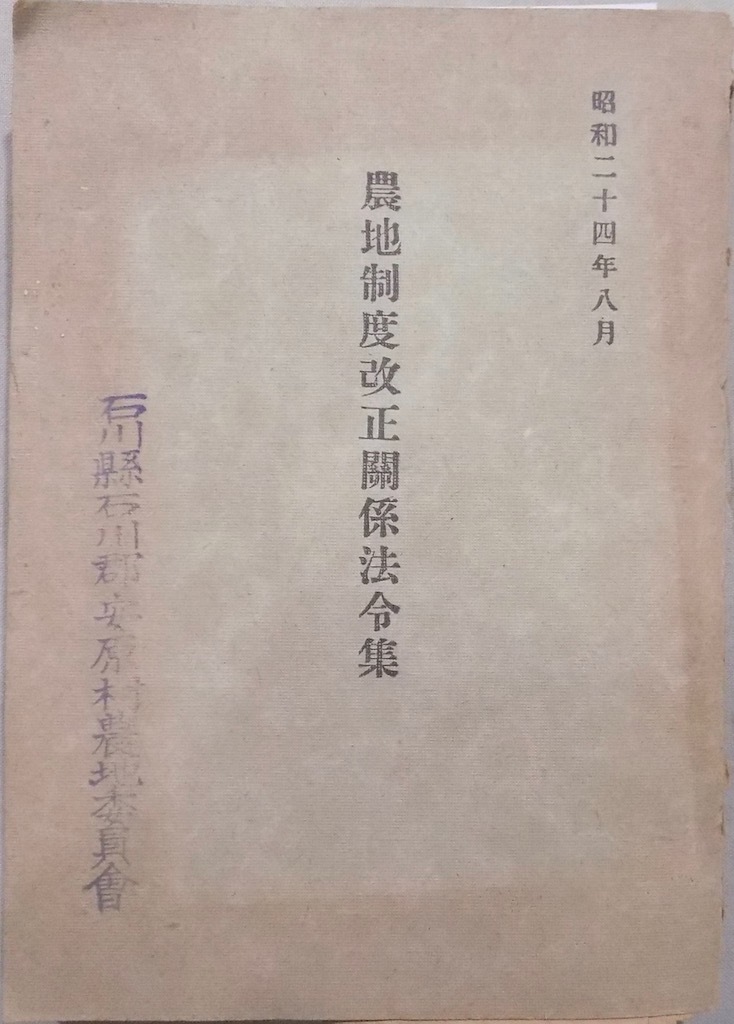 昭和二十四年八月
農地制度改正關係法令集
石川縣石川郡安原村農地委員會